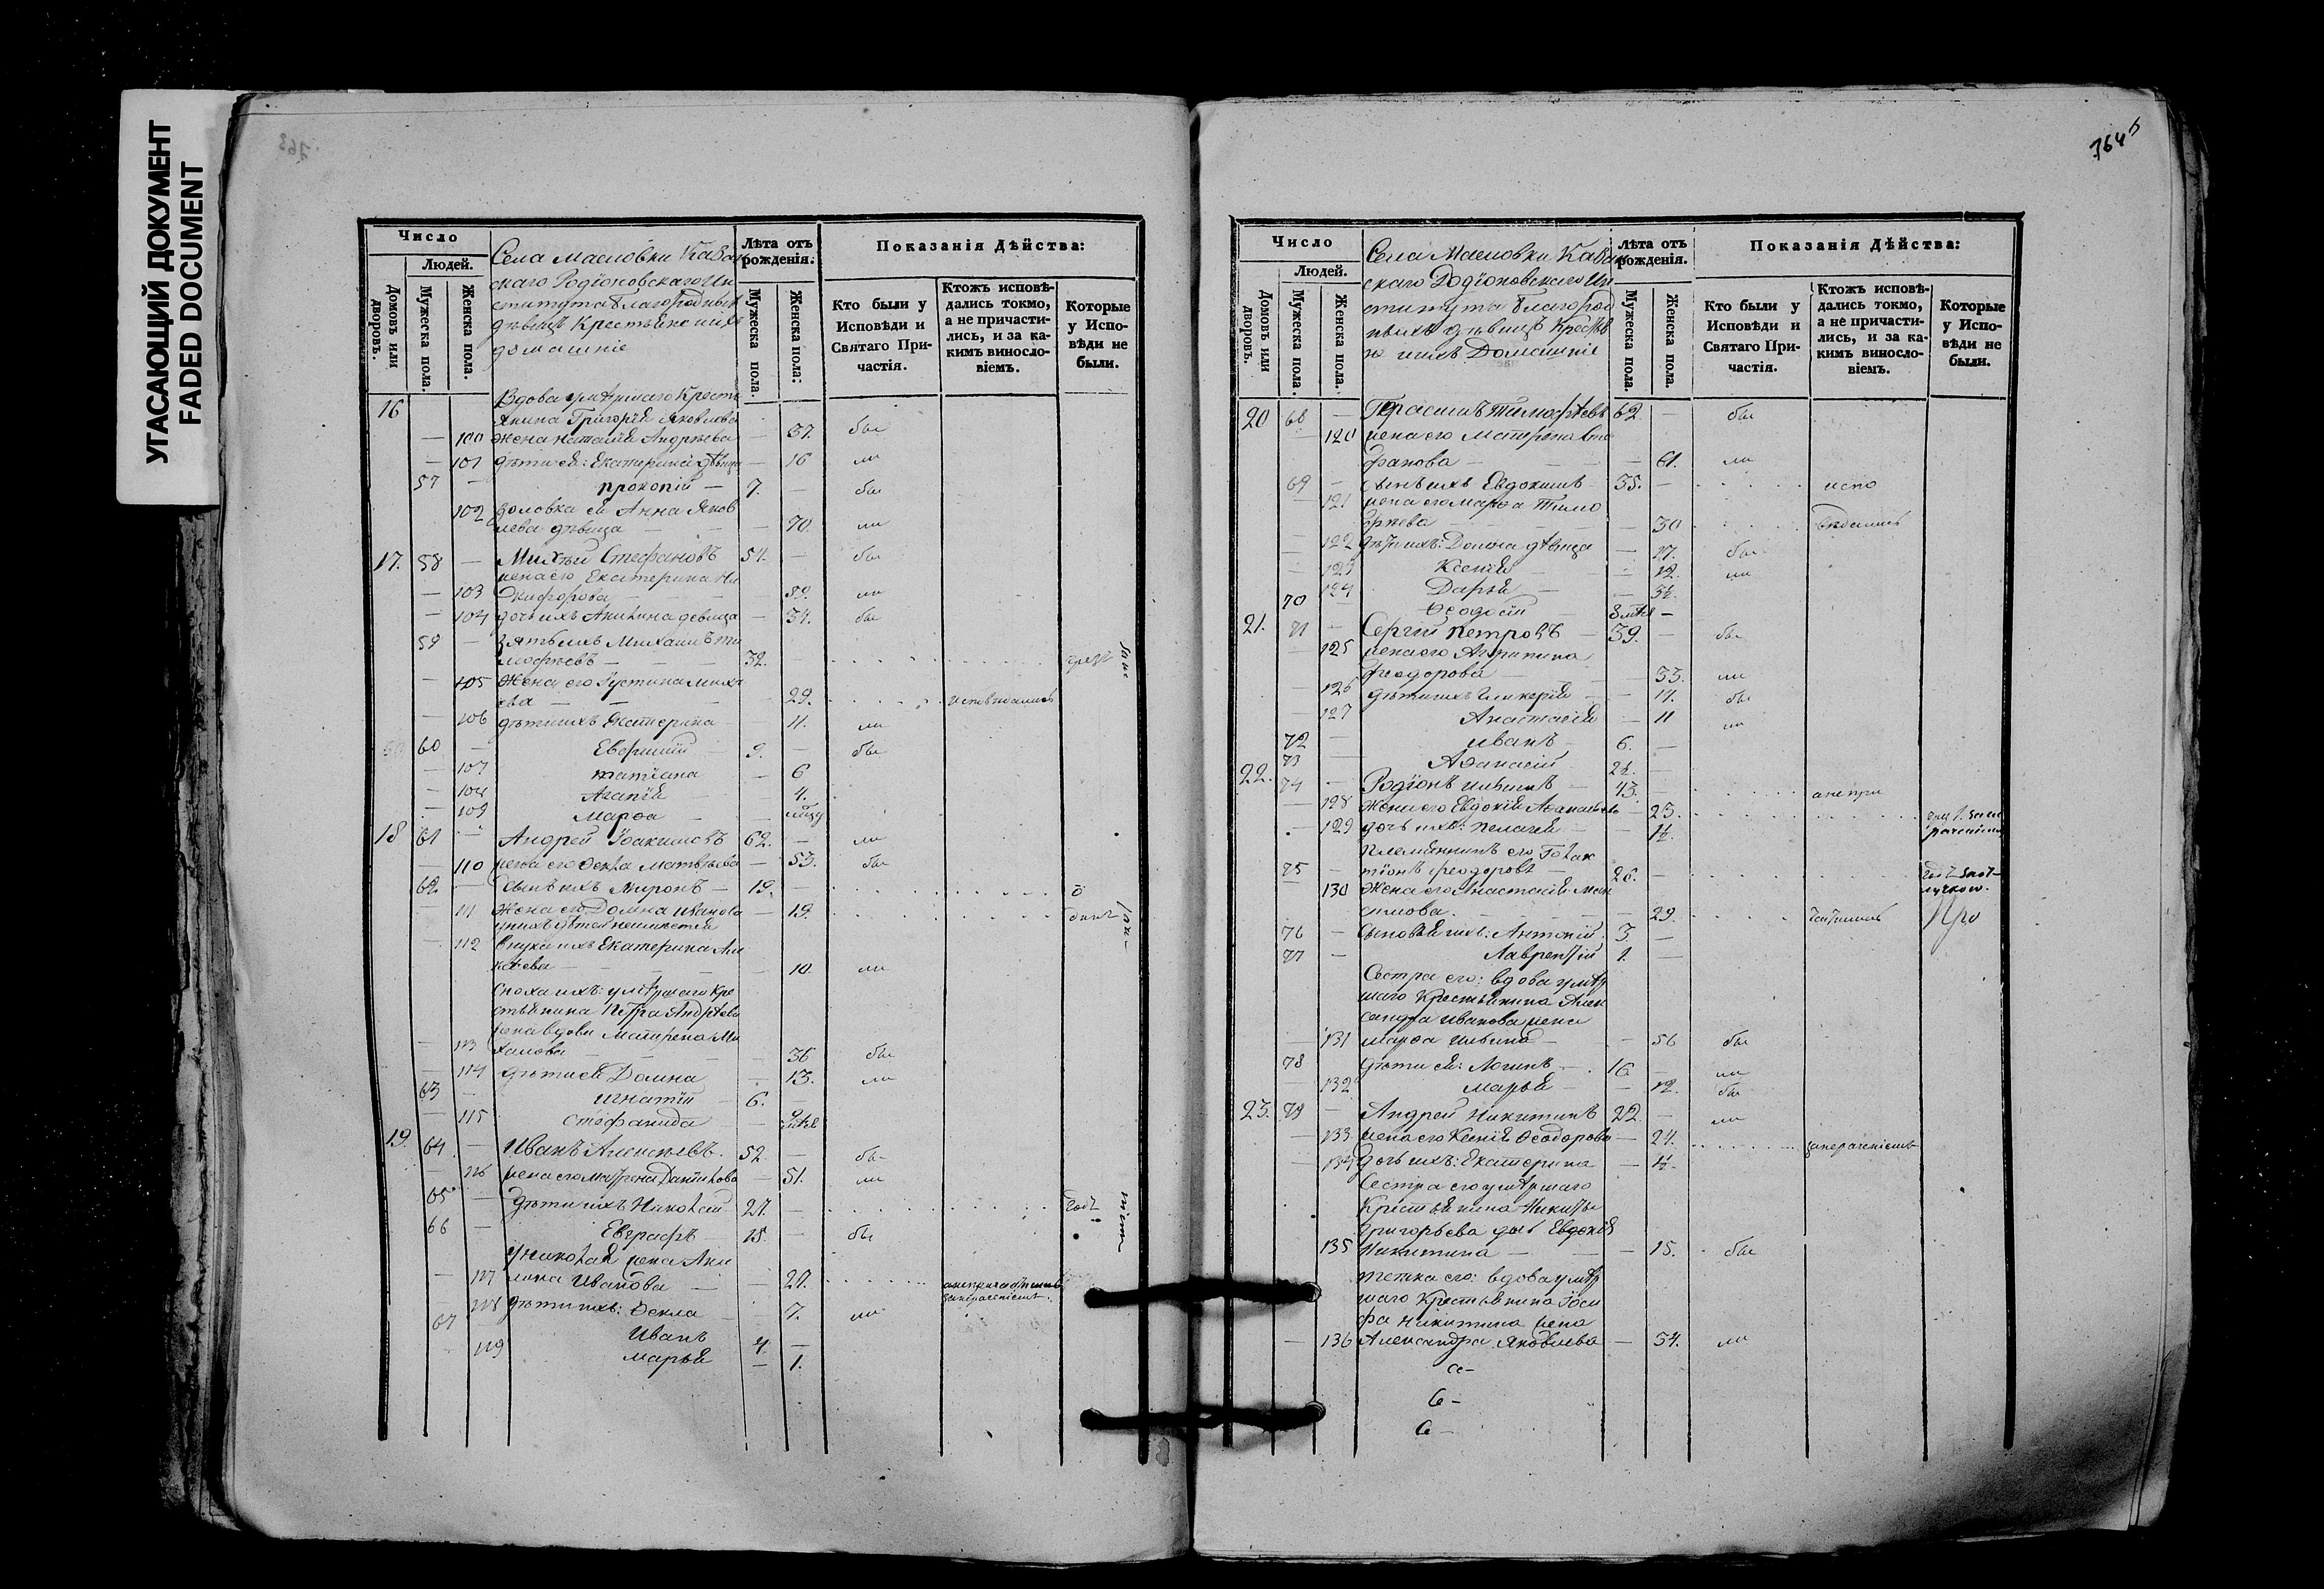 УГАСАЮЩИЙ ДОКУМЕНТ
FADED DOCUMENT
Число
Людей.
Домовъ или дворовъ.
Мужеска пола.
Женска пола.
Села Масловки Казан
скаго Родіоновскаго Ин
ститута благородныхъ
дѣвицъ Крестьяне и ихъ
домашніе
Лѣта отъ рожденія:
Мужеска пола.
Женска пола:
Показанія Дѣйства:
Кто были у Исповѣди и Святаго Причастія.
Ктожъ исповѣдались токмо, а не причастились, и за какимъ винословіемъ.
Которые у Исповѣди не были.
16
Вдова умершаго Кресть
янина Григорія Яковлева
— 100 жена Наталія Андрѣева — 37. бы
— 101 дѣти ея: Екатерина дѣвица — 16 ли
57 — Прокопій — 7. — бы
102 золовка ея Анна Яков
лева дѣвица — — 70. ли
17. 58 — Михѣй Стефановъ 51. — бы
жена его Екатерина Ни
— 103 кифорова — 52. ли
— 104 дочь ихъ Акилина девица — 34. бы
59 — Зять ихъ Михаилъ Ти
мофѣевъ — 32.
— 105 Жена его Іустина Михѣ
ева — 29. исповѣдались
— 106 дѣти ихъ Екатерина — 11. ли
60 — Евфимій 9. — бы
— 107 Татіана — 6
— 108 Агапія — 4.
— 109 Марѳа —
18 61 — Андрей Іоакимовъ 62. — ли
— 110 жена его Ѳекла Матвѣева — 53. бы
62. — Сынъ ихъ Миронъ — 19. —
— 111 Жена его Домна Иванова — 19.
— 112 внука ихъ Екатерина Але
ксѣева — 10. ли
Сноха ихъ: умершаго Кре
стьянина Петра Андрѣева
жена вдова Матрена Ми
— 113 хайлова — 36 бы
— 114 дѣти ея Домна — 13. ли
63 — Игнатій 6. —
— 115 Стефанида —
19. 64 — Иванъ Алексѣевъ. 52. — бы
— 116 жена его Матрена Данилова — 51. ли
65 — Дѣти ихъ Николай 27. —
66 — Евграфъ — 15. — бы
у Николая жена Аки
— 117 лина Иванова — 27. а не причастились
за пораченіемъ.
— 118 Дѣти ихъ: Ѳекла — 7. ли
67 Иванъ 4 —
119 Марья — 1.
364
Число
Людей.
Домовъ или дворовъ.
Мужеска пола.
Женска пола.
Села Масловки Казан
скаго Родіоновскаго Ин
ститута благород
ныхъ дѣвицъ Крестья
не и ихъ Домашніе
Лѣта отъ рожденія.
Мужеска пола.
Женска пола.
Показанія Дѣйства:
Кто были у Исповѣди и Святаго Причастія.
Ктожъ исповѣдались токмо, а не причастились, и за какимъ винословіемъ.
Которые у Исповѣди не были.
20 68 — Герасимъ Тимофѣевъ 62. — бы
— 120 жена его Матрена Сте
фанова — 61. ли
69 — сынъ ихъ Евдокимъ 35. — испо
— 121 жена его Марѳа Тимо
фѣева — 30 вѣдались
— 122 дѣти ихъ: Домна дѣвица — 17. бы
— 123 Ксенія — 12. ли
— 124 Дарья —
70 — Ѳеодосій
21. 71 — Сергій Петровъ 39. — бы
— 125 жена его Агрипина
Феодорова — 33. ли
— 126 дѣти ихъ Гликерія — бы
— 127 Анастасія — 11 ли
72 — Иванъ 6. —
73 — Аѳанасій
22. 74 — Родіонъ Ильинъ 43. — а не при
— 128 Жена его Евдокія Аѳанасьева — 23.
— 129 дочь ихъ: Пелагея —
Племянникъ его Галак
75 — тіонъ Феодоровъ — 26. —
— 130 Жена его Анастасія Мак
симова. — 29. частились
76 — Сыновья ихъ: Антоній 3 —
77 — Лаврентій 1. —
Сестра его: вдова умер
шаго Крестьянина Алек
сандра Иванова жена
— 131 Марѳа Ильина — 56 бы
78 — дѣти ея: Логинъ — 16. — ли
— 132 Марья — 12. бы
23. 79 — Андрей Никитинъ 22. — ли
— 133 жена его Ксенія Ѳеодорова — 24. за пораченіемъ
— 134 Дочь ихъ: Екатерина —
Сестра его умершаго
Крестьянина Никиты
Григорьева дочь Евдокія
135 Никитина — 15. бы
тетка его: вдова умер
шаго Крестьянина Іоси
фа Никитина жена
— 136 Александра Яковлева — 54. ли